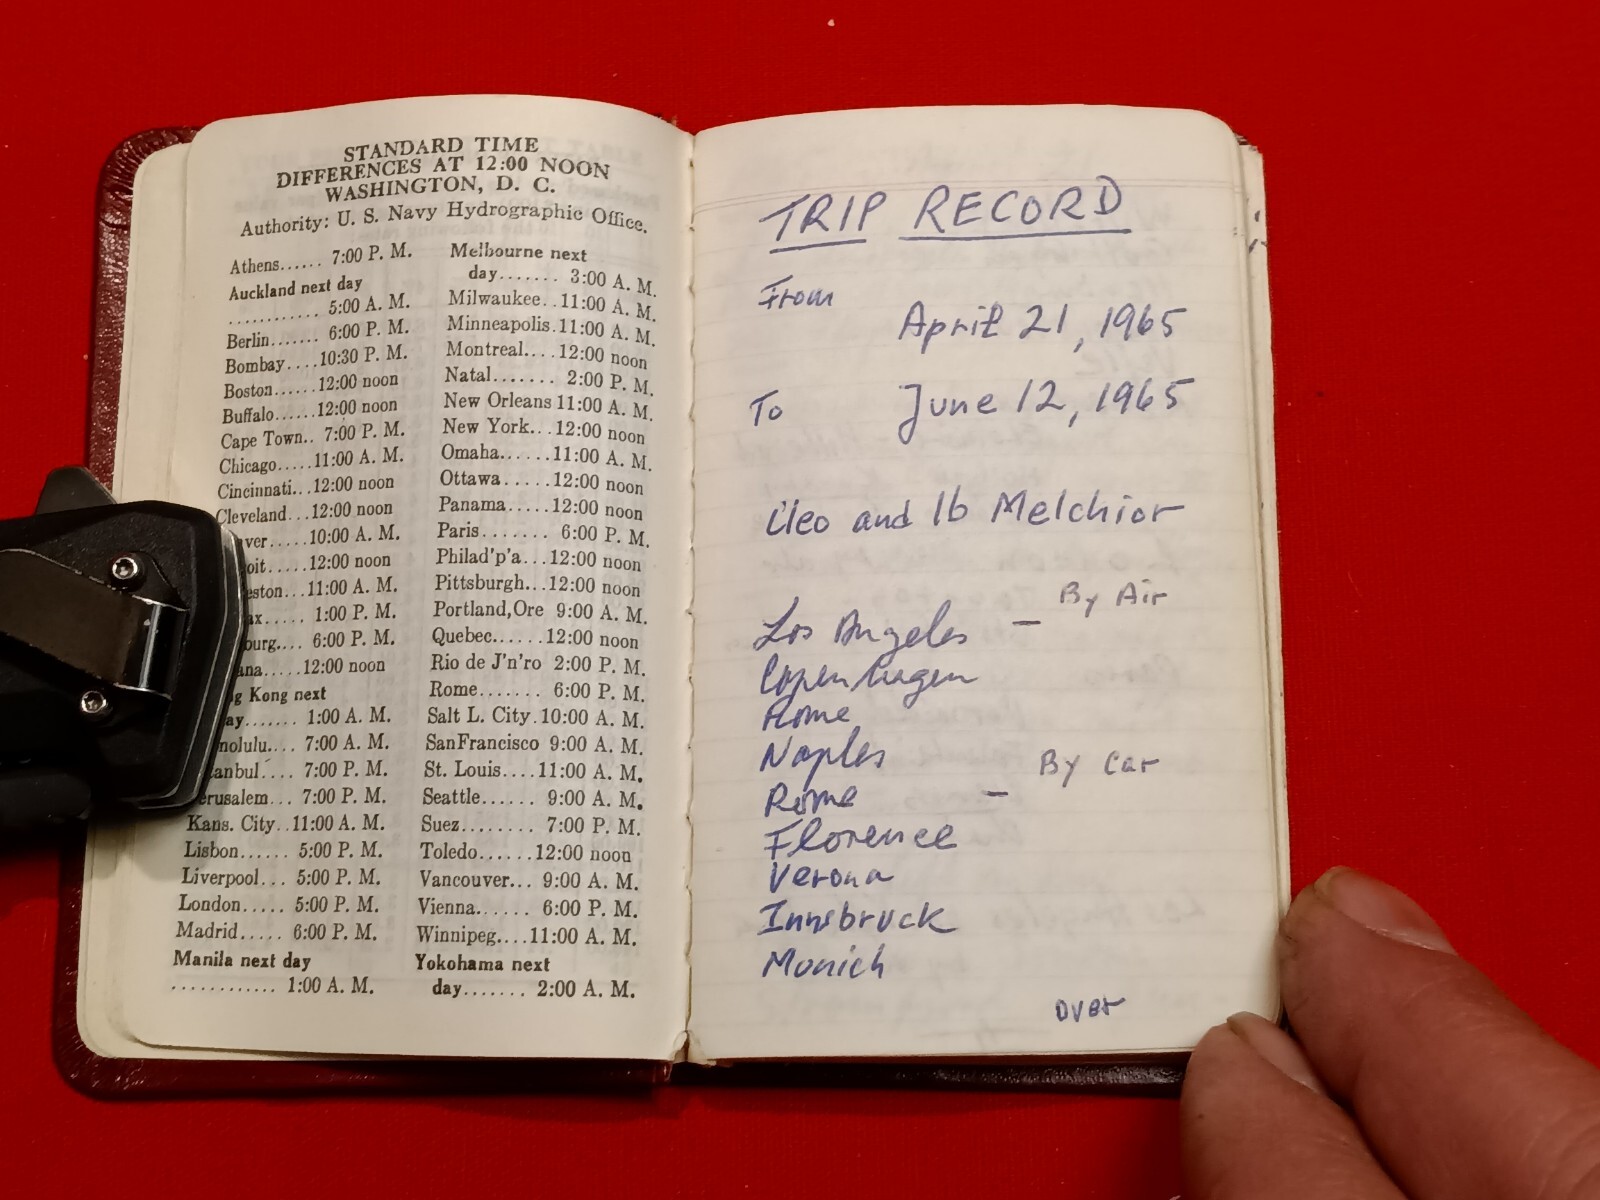 STANDARD TIME
DIFFERENCES AT 12:00 NOON
WASHINGTON, D. C.
Authority: U. S. Navy Hydrographic Office.
Athens...... 7:00 P. M.
Auckland next day
............ 5:00 A. M.
Berlin....... 6:00 P. M.
Bombay....10:30 P. M.
Boston......12:00 noon
Buffalo......12:00 noon
Cape Town.. 7:00 P. M.
Chicago.....11:00 A. M.
Cincinnati...12:00 noon
Cleveland...12:00 noon
ver.....10:00 A. M.
oit.....12:00 noon
eston...11:00 A. M.
ax..... 1:00 P. M.
burg.... 6:00 P. M.
ana.....12:00 noon
g Kong next
ay....... 1:00 A. M.
nolulu.... 7:00 A. M.
anbul.... 7:00 P. M.
erusalem... 7:00 P. M.
Kans. City..11:00 A. M.
Lisbon...... 5:00 P. M.
Liverpool... 5:00 P. M.
London..... 5:00 P. M.
Madrid..... 6:00 P. M.
Manila next day
............ 1:00 A. M.
Melbourne next
day....... 3:00 A. M.
Milwaukee..11:00 A. M.
Minneapolis.11:00 A. M.
Montreal....12:00 noon
Natal....... 2:00 P. M.
New Orleans 11:00 A. M.
New York...12:00 noon
Omaha......11:00 A. M.
Ottawa.....12:00 noon
Panama.....12:00 noon
Paris....... 6:00 P. M.
Philad'p'a...12:00 noon
Pittsburgh...12:00 noon
Portland,Ore 9:00 A. M.
Quebec......12:00 noon
Rio de J'n'ro 2:00 P. M.
Rome....... 6:00 P. M.
Salt L. City.10:00 A. M.
SanFrancisco 9:00 A. M.
St. Louis....11:00 A. M.
Seattle...... 9:00 A. M.
Suez........ 7:00 P. M.
Toledo......12:00 noon
Vancouver... 9:00 A. M.
Vienna...... 6:00 P. M.
Winnipeg....11:00 A. M.
Yokohama next
day....... 2:00 A. M.
TRIP RECORD
From
April 21, 1965
To June 12, 1965
Cleo and Ib Melchior
Los Angeles - By Air
Copenhagen
Rome
Naples
Rome - By Car
Florence
Verona
Innsbruck
Munich
over